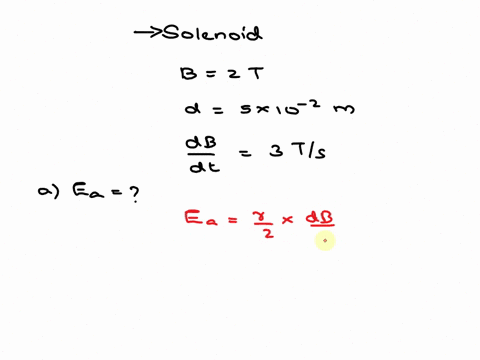 →Solenoid
B = 2 T
d = 5×10⁻² m
dB/dt = 3 T/s
a) Ea = ?
Ea = r/2 × dB